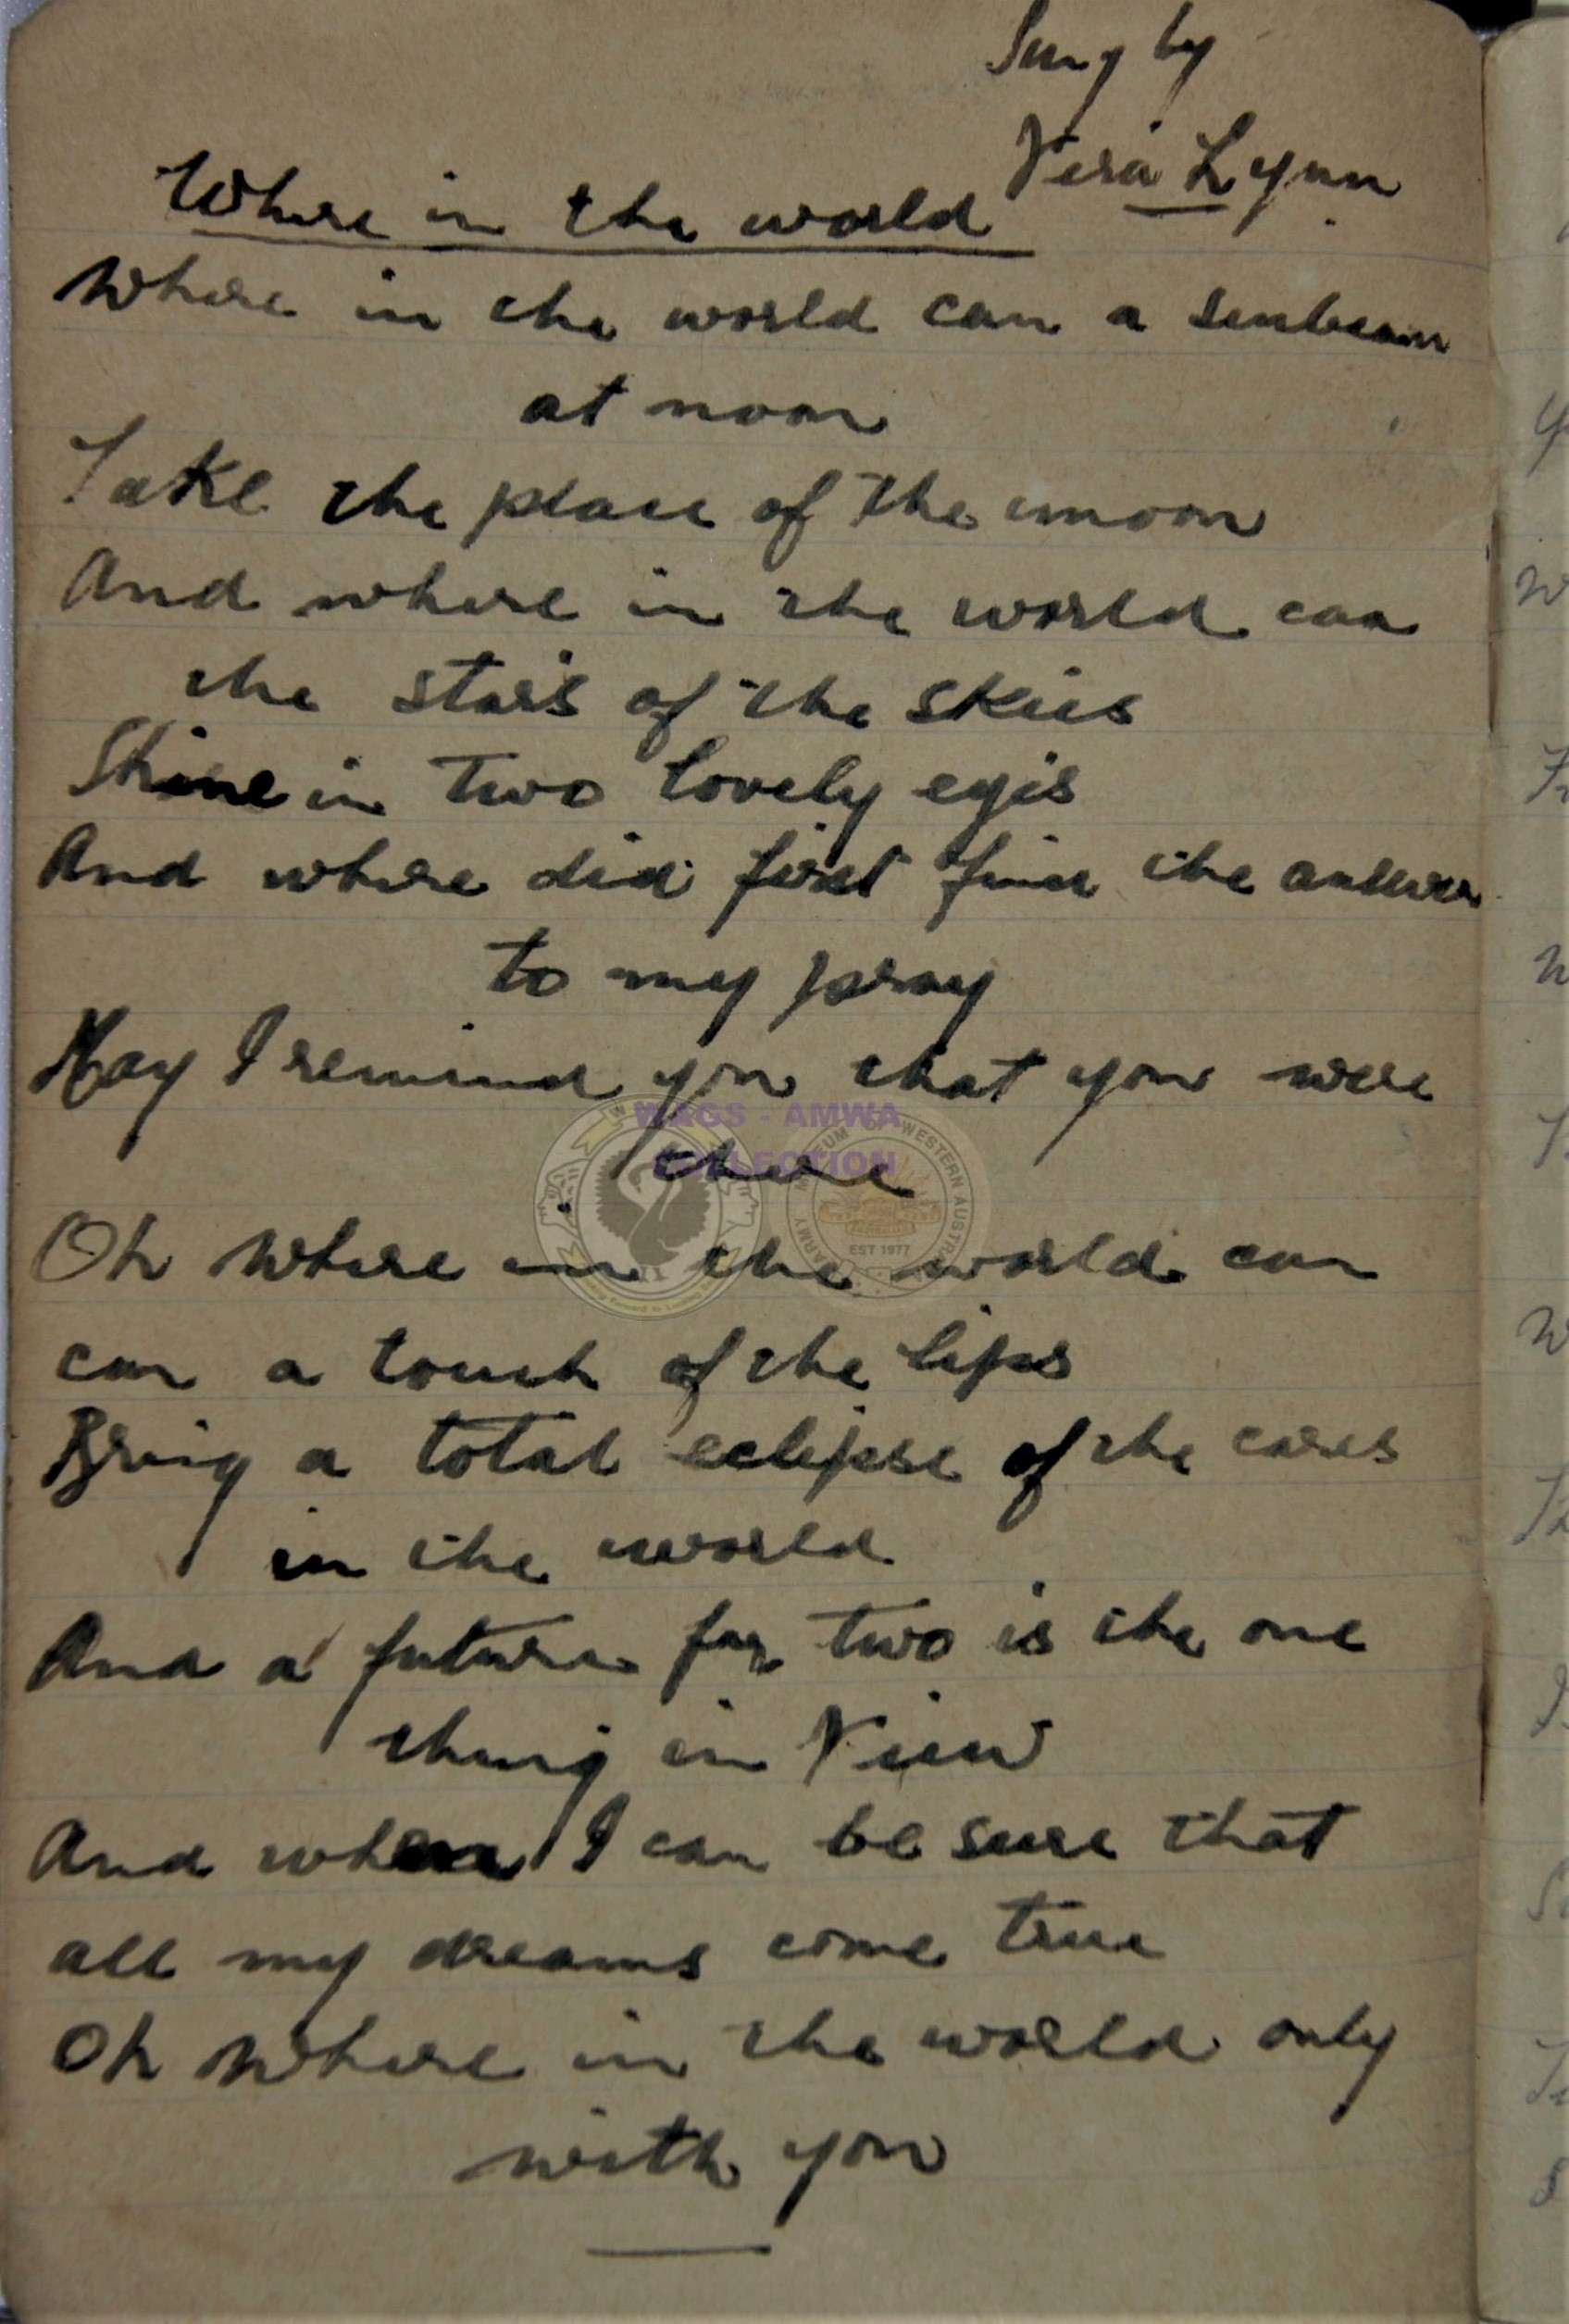 Sung by
Vera Lynn
Where in the world
Where in the world can a sunbeam
at noon
Take the place of the moon
And where in the world can
the stars of the skies
Shine in two lovely eyes
And where did first find the answer
to my pray
May I remind you that you were
there
WAGS - AMWA
COLLECTION
EST 1977
Oh where in the world can
can a touch of the lips
Bring a total eclipse of the cares
in the world
And a future for two is the one
thing in View
And when I can be sure that
all my dreams come true
Oh where in the world only
with you